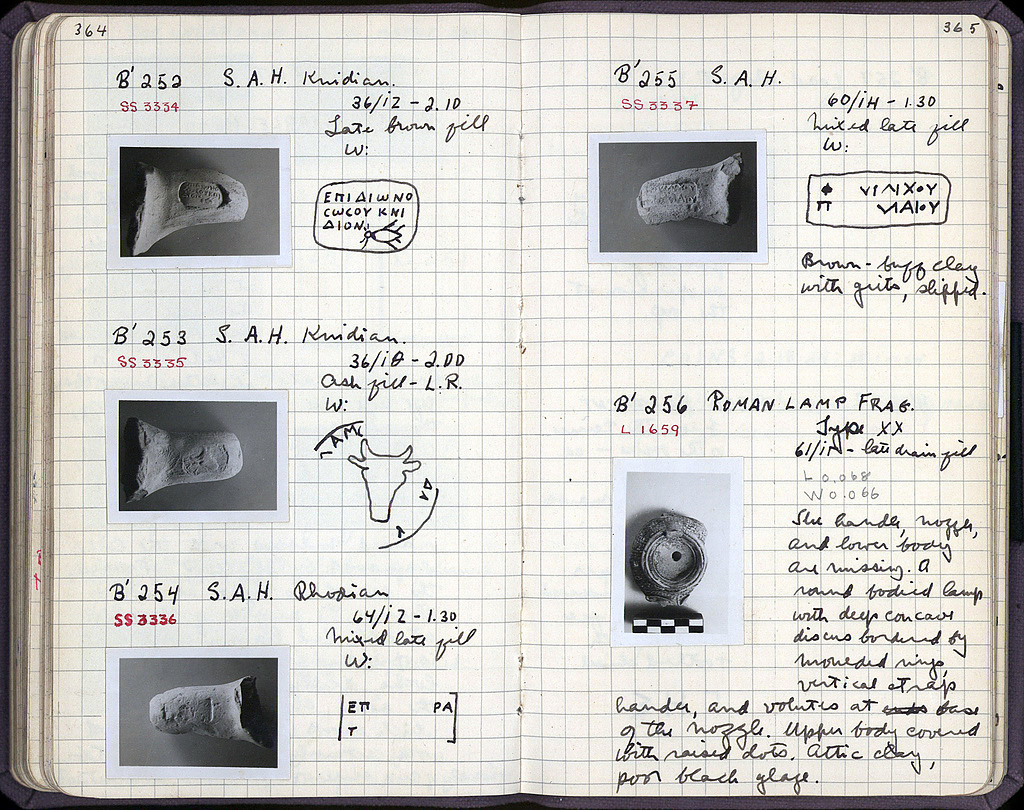 364
B' 252 S.A.H. Knidian.
SS 3334
36/ΙΖ - 2.10
Late brown fill
W:
ΕΠΙΔΙΩΝΟ
ϹΩϹΟΥ ΚΝΙ
ΔΙΟΝ
B' 253 S.A.H. Knidian.
SS 3335
36/ΙΘ - 2.00
Ash fill - L.R.
W:
ΔΑ
B' 254 S.A.H. Rhodian
SS 3336
64/ΙΖ - 1.30
Mixed late fill
W:
ΕΠ ΡΑ
Τ
365
B' 255 S.A.H.
SS 3337
60/ΙΗ - 1.30
Mixed late fill
W:
Φ
Π
Brown-buff clay
with grits, slipped.
B' 256 ROMAN LAMP FRAG.
L 1659
Type XX
- late drain fill
L 0.068
W 0.066
The handle, nozzle,
and lower body
are missing. A
round bodied lamp
with deep concave
discus bordered by
moulded rings,
vertical strap
handle, and volutes at base
of the nozzle. Upper body covered
with raised dots. Attic clay,
poor black glaze.